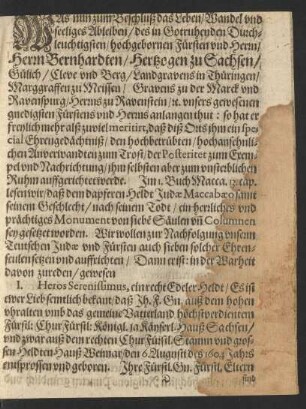 WAs nun zum Beschluß das Leben / Wandel vnd
seeliges Ableiben / des in Gott ruhenden Durch-
leuchtigsten / hochgebornen Fürsten vnd Herrn /
Herrn Bernhardten / Hertzogen zu Sachsen /
Gülich / Cleve vnd Berg / Landgravens in Thüringen /
Marggraffen zu Meissen / Gravens zu der Marck vnd
Ravenspurg / Herrns zu Ravenstein / ꝛc. vnsers gewesenen
gnedigsten Fürstens vnd Herrns anlangen thut : so hat er
freylich mehr alß zuviel meritirt, daß diß Orts ihm ein spe-
cial Ehrengedächtniß / den hochbetrübten / hochansehnli-
chen Anverwandten zum Trost / der Posteritet zum Exem-
pel vnd Nachrichtung / ihm selbsten aber zum vnsterblichen
Ruhm auffgerichtet werde. Im 1. Buch Macca. 13. cap.
lesen wir / daß dem dapffern Heldē Judæ Maccabæo sampt
seinem Geschlecht / nach seinem Todt / ein herrliches vnd
prächtiges Monument von siebē Säulen vñ Columnen
sey gesetzet worden. Wir wollen zur Nachfolgung vnserm
Teutschen Judæ vnd Fürsten auch sieben solcher Ehren-
seulen setzen vnd auffrichten / Dann er ist : in der Warheit
davon zureden / gewesen
I. Heros Serenissimus, ein recht Edeler Heldt / Es ist
ewer Lieb semtlich bekant / daß Ih. F. Gn. auß dem hohen
vhralten vmb das gemeine Vatterland höchstverdientem
Fürstl: Chur Fürstl. Königl. ja Käyserl. Hauß Sachsen /
vnd zwar auß dem rechten Chur Fürstl. Stamm vnd gros-
sen Helden-Hauß Weimar / den 6 August des 1604 Jahrs
entsprossen vnd geboren. Ihre Fürstl. Gn. Fürstl. Eltern
sind